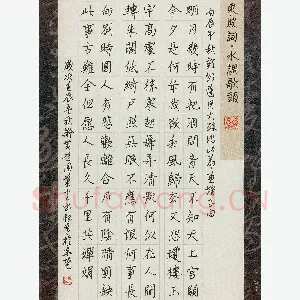 東坡詞·水調歌頭
丙辰中秋歡飲達旦大醉作此篇兼懷子由
明月幾時有把酒問青天不知天上宮闕
今夕是何年我欲乘風歸去又恐瓊樓玉
宇高處不勝寒起舞弄清影何似在人間
轉朱閣低綺户照無眠不應有恨何事長
向別時圓人有悲歡離合月有陰晴圓缺
此事古難全但願人長久千里共嬋娟
歲次